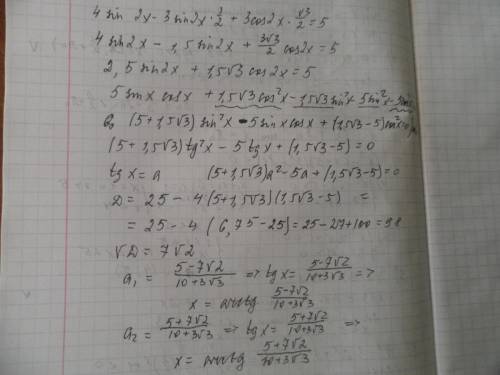 4 sin 2x - 3 sin2x · 1/2 + 3cos2x · √3/2 = 5
4 sin2x - 1,5 sin2x + 3√3/2 cos2x = 5
2,5 sin2x + 1,5√3 cos2x = 5
5 sinx cosx + 1,5√3 cos²x - 1,5√3 sin²x - 5sin²x - 5cos²x
(5+1,5√3) sin²x - 5 sinx cosx + (1,5√3-5)cos²x=0
(5+1,5√3) tg²x - 5 tgx + (1,5√3-5) = 0
tg x = a (5+1,5√3)a² - 5a + (1,5√3-5)=0
D = 25 - 4(5+1,5√3)(1,5√3-5) =
= 25 - 4 (6,75-25) = 25-27+100 = 98
√D = 7√2
a₁ = 5-7√2/10+3√3 => tgx = 5-7√2/10+3√3 =>
x = arctg 5-7√2/10+3√3
a₂ = 5+7√2/10+3√3 => tgx = 5+7√2/10+3√3 =>
x = arctg 5+7√2/10+3√3